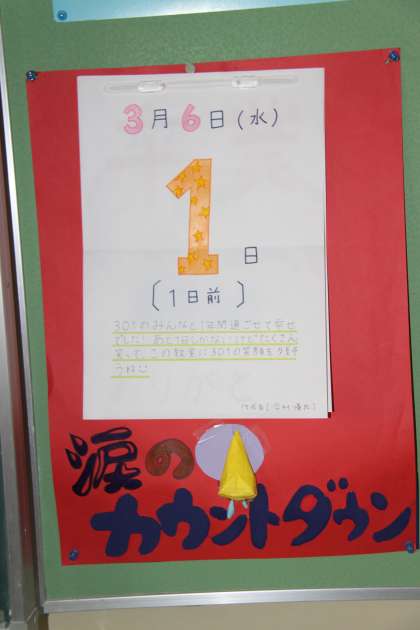 3月6日(水)
1日
〔1日前〕
301のみんなと1年間過ごせて幸せ
でした!あと1日しかないけどたくさん
笑って、この教室に301の笑顔を
うね
涙の
カウントダウン